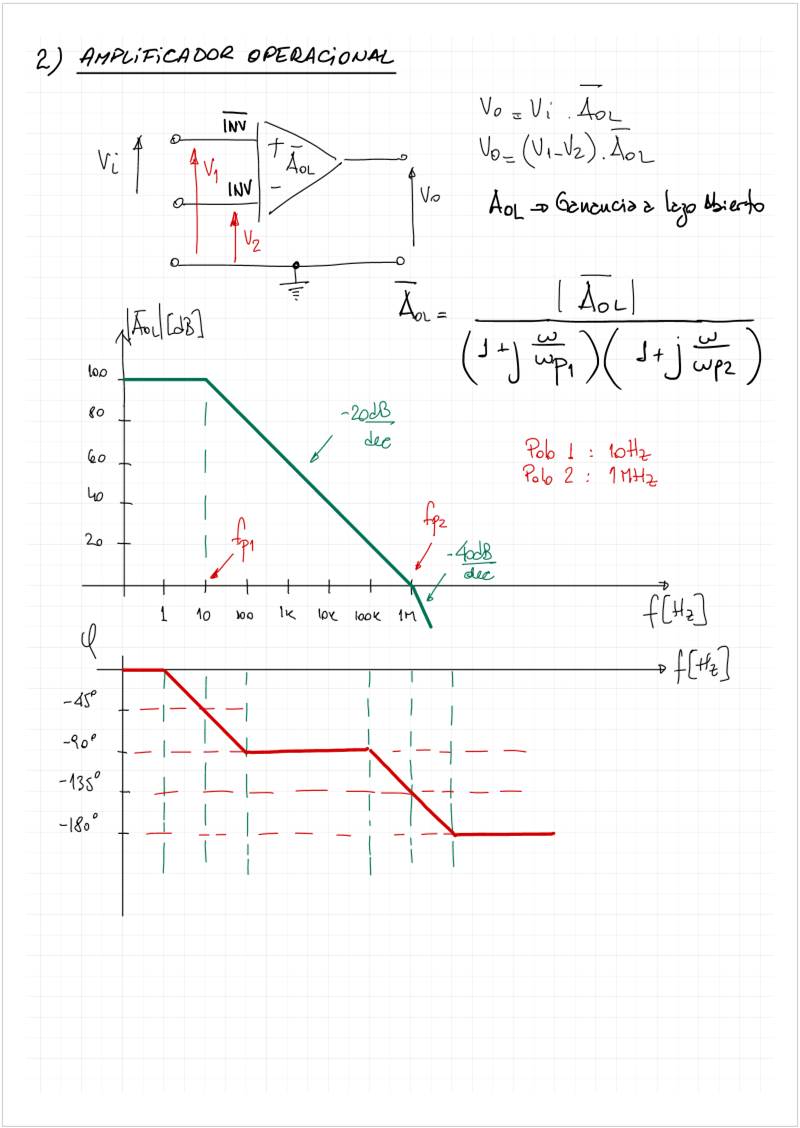 2) AMPLIFICADOR OPERACIONAL
Vi
V1
V2
I̅N̅V̅
INV
+
-
A̅OL
Vo
Vo = Vi . A̅OL
Vo = (V1-V2) . A̅OL
AOL → Ganancia a lazo Abierto
A̅OL = |A̅OL| / (1 + j ω/ωp1)(1 + j ω/ωp2)
|A̅OL| [dB]
100
80
60
40
20
-20dB/dec
Polo 1 : 10Hz
Polo 2 : 1MHz
fp1
fp2
-40dB/dec
1 10 100 1K 10K 100K 1M
f[Hz]
φ
f[Hz]
-45°
-90°
-135°
-180°